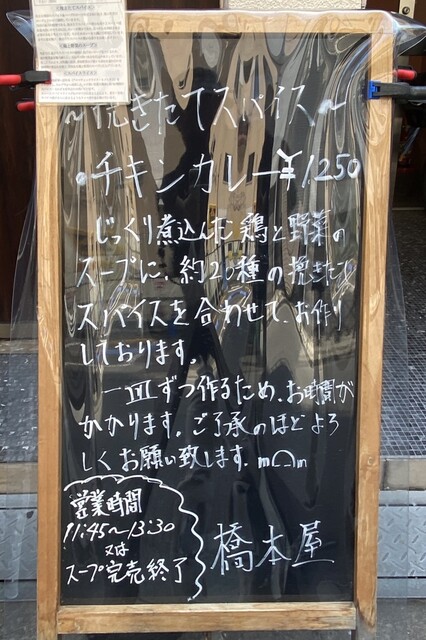 ~挽きたてスパイス~
・チキンカレー¥1,250
じっくり煮込んだ鶏と野菜の
スープに、約20種の挽きたて
スパイスを合わせて、お作り
しております。
一皿ずつ作るため、お時間が
かかります。ご了承のほどよろ
しくお願い致します。m○m
営業時間
11:45~13:30
又は
スープ完売終了
橋本屋